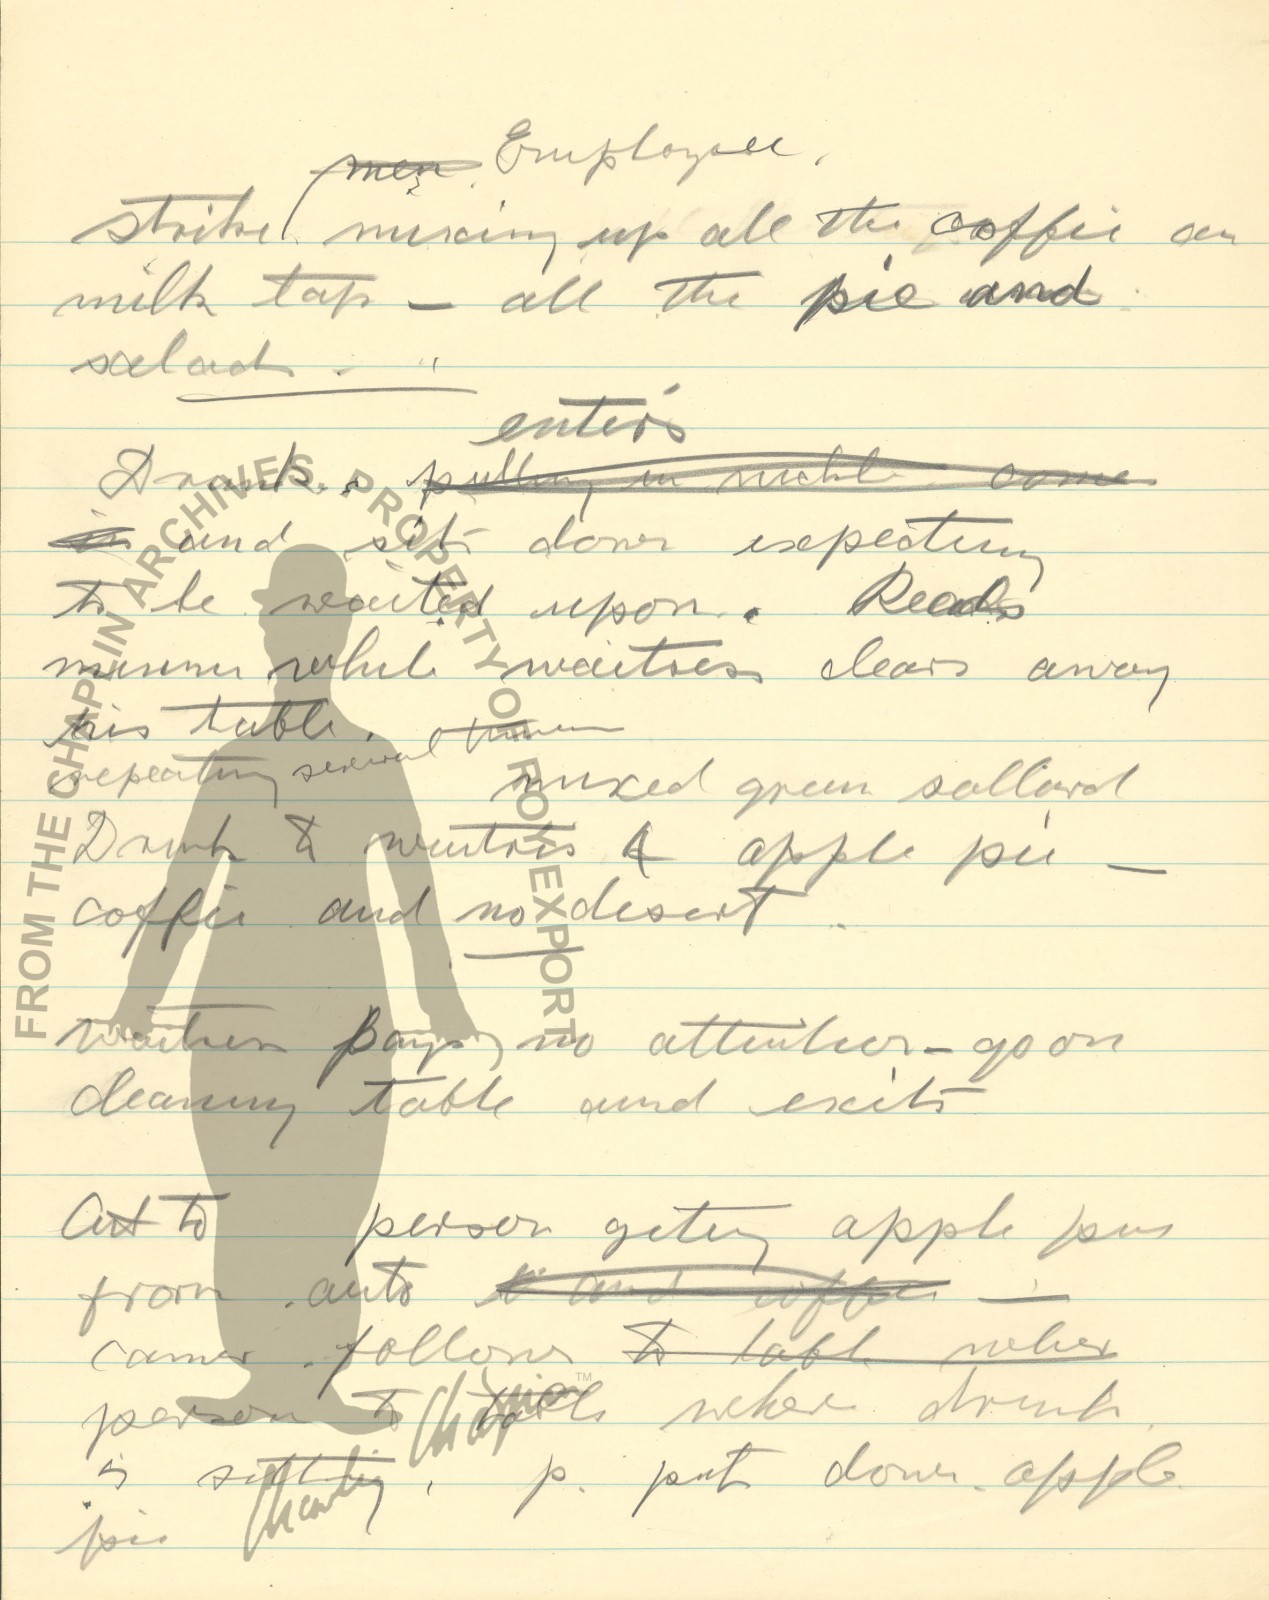 men. Employee,
strike mixing up all the coffie an
milk tap — all the pie and
salad.
enters
Drunk. pulling in nickle come
in and sits down expecting
to be waited upon. Reads
menu while waitress clears away
his table.
repeating several times
mixed green sallard
Drunk to waitress & apple pie —
coffie and no desert
waitress pays no attention — go on
cleaning table and exits
Cut to person geting apple pie
from auto and coffie —
camer follows to table wher
person to table wher drunk
is sitting. p. put down apple
pie
FROM THE CHAPLIN ARCHIVES. PROPERTY OF ROY EXPORT
Charlie Chaplin™